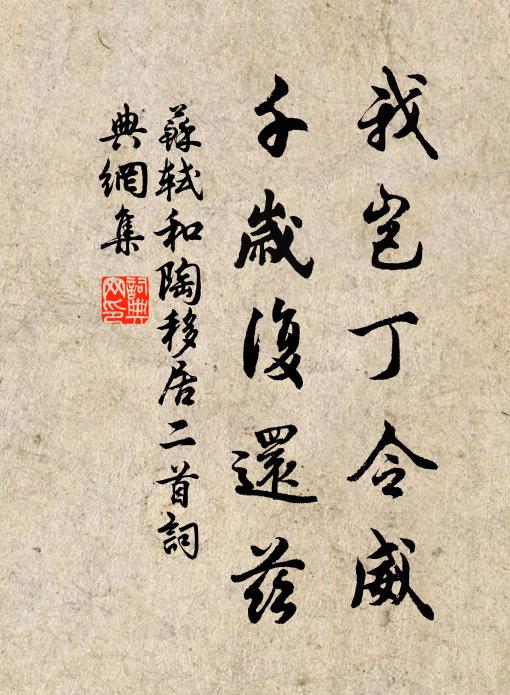 我岂丁令威
千歳復還兹
蘇軾和陶移居二首詞
典網集
詞典
网印